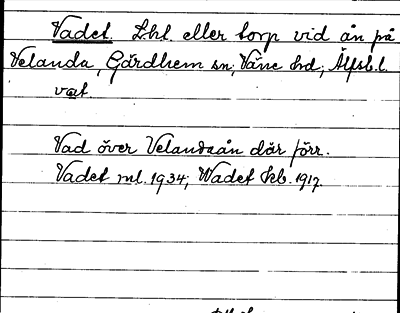 Vadet. Lht. eller torp vid ån på
Velanda, Gärdhem sn; Väne hd; Älfsb.l.
vat.
Vad över Velandaån där förr.
Vadet ml. 1934; Wadet kb. 1917.